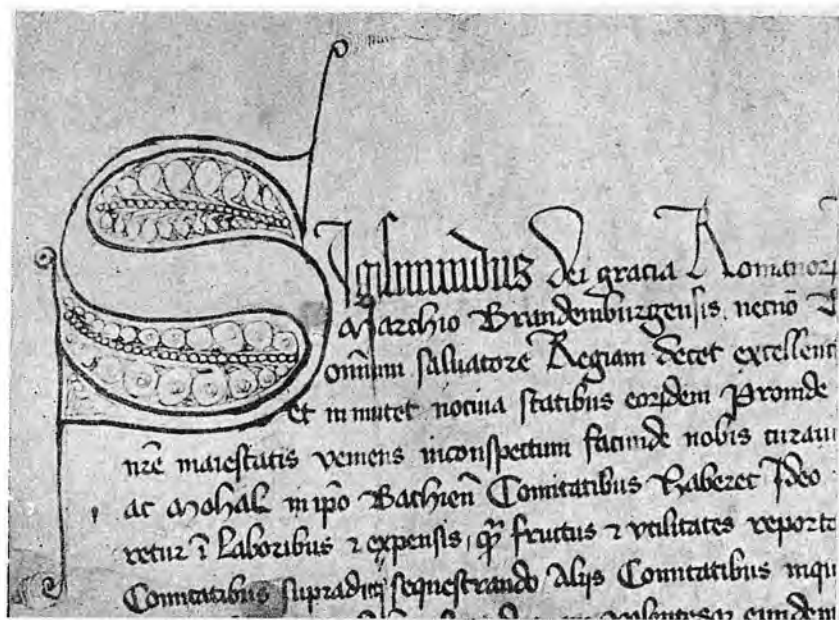 Sigismundus dei gracia Romanor
Marchio Brandemburgensis, necnō
omnium saluatore Regiam decet excellenti
et in mutet nociua statibus eorsdem Proinde
nr̄e maiestatis veniens in conspectum facunde nobis curaui
ac Mohal in ip̄o Bachien̄ Comitatibus Haberet Ideo
retur ī Laboribus ⁊ expensis, qꝫ fructus ⁊ vtilitates reporta
Comitatibus supradictis sequestrando Alijs Comitatibus inqu
eundem